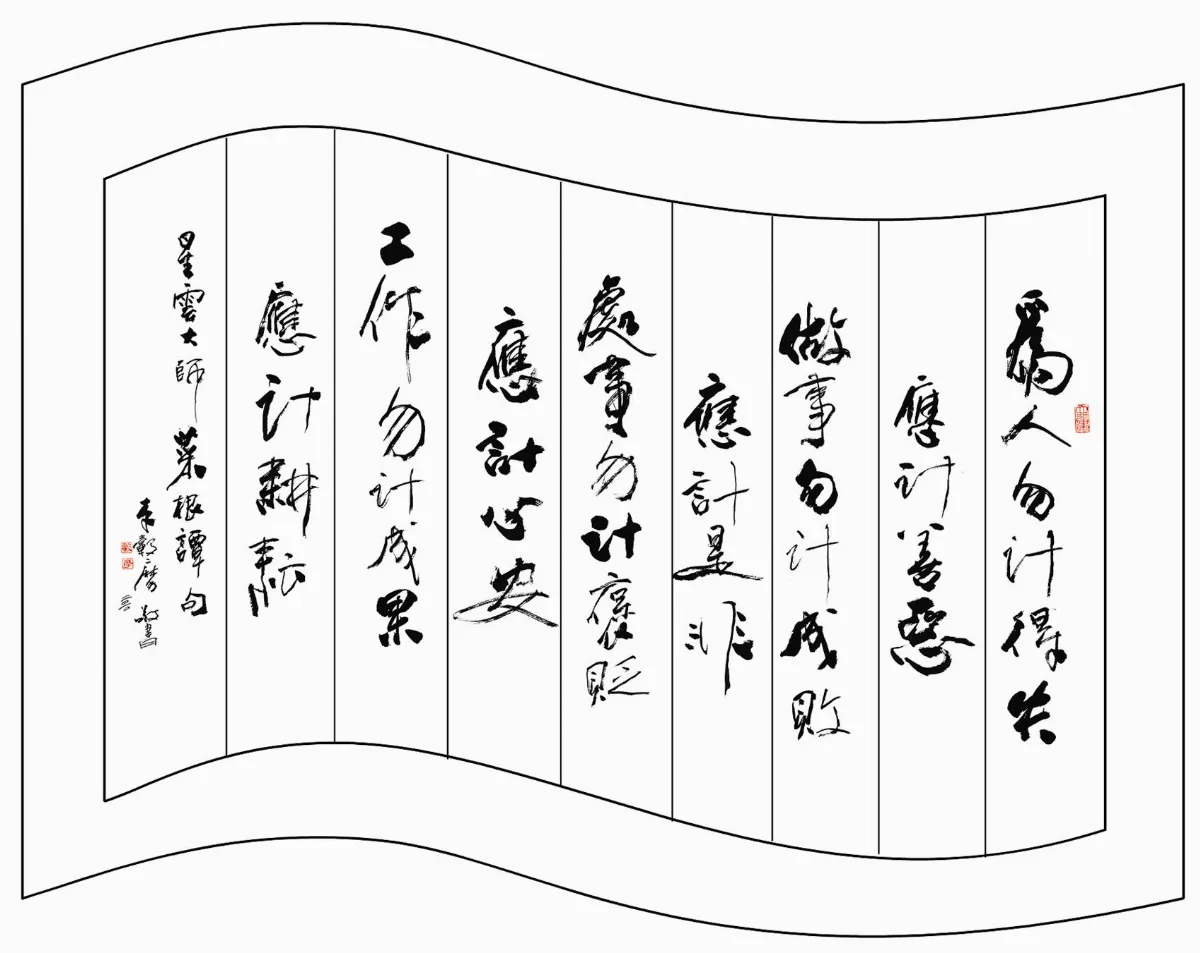 爲人勿计得失
應计善惡
做事勿计成敗
應計是非
處事勿计褒貶
應計心安
工作勿计成果
應计耕耘
星雲大師菜根譚句
敬書